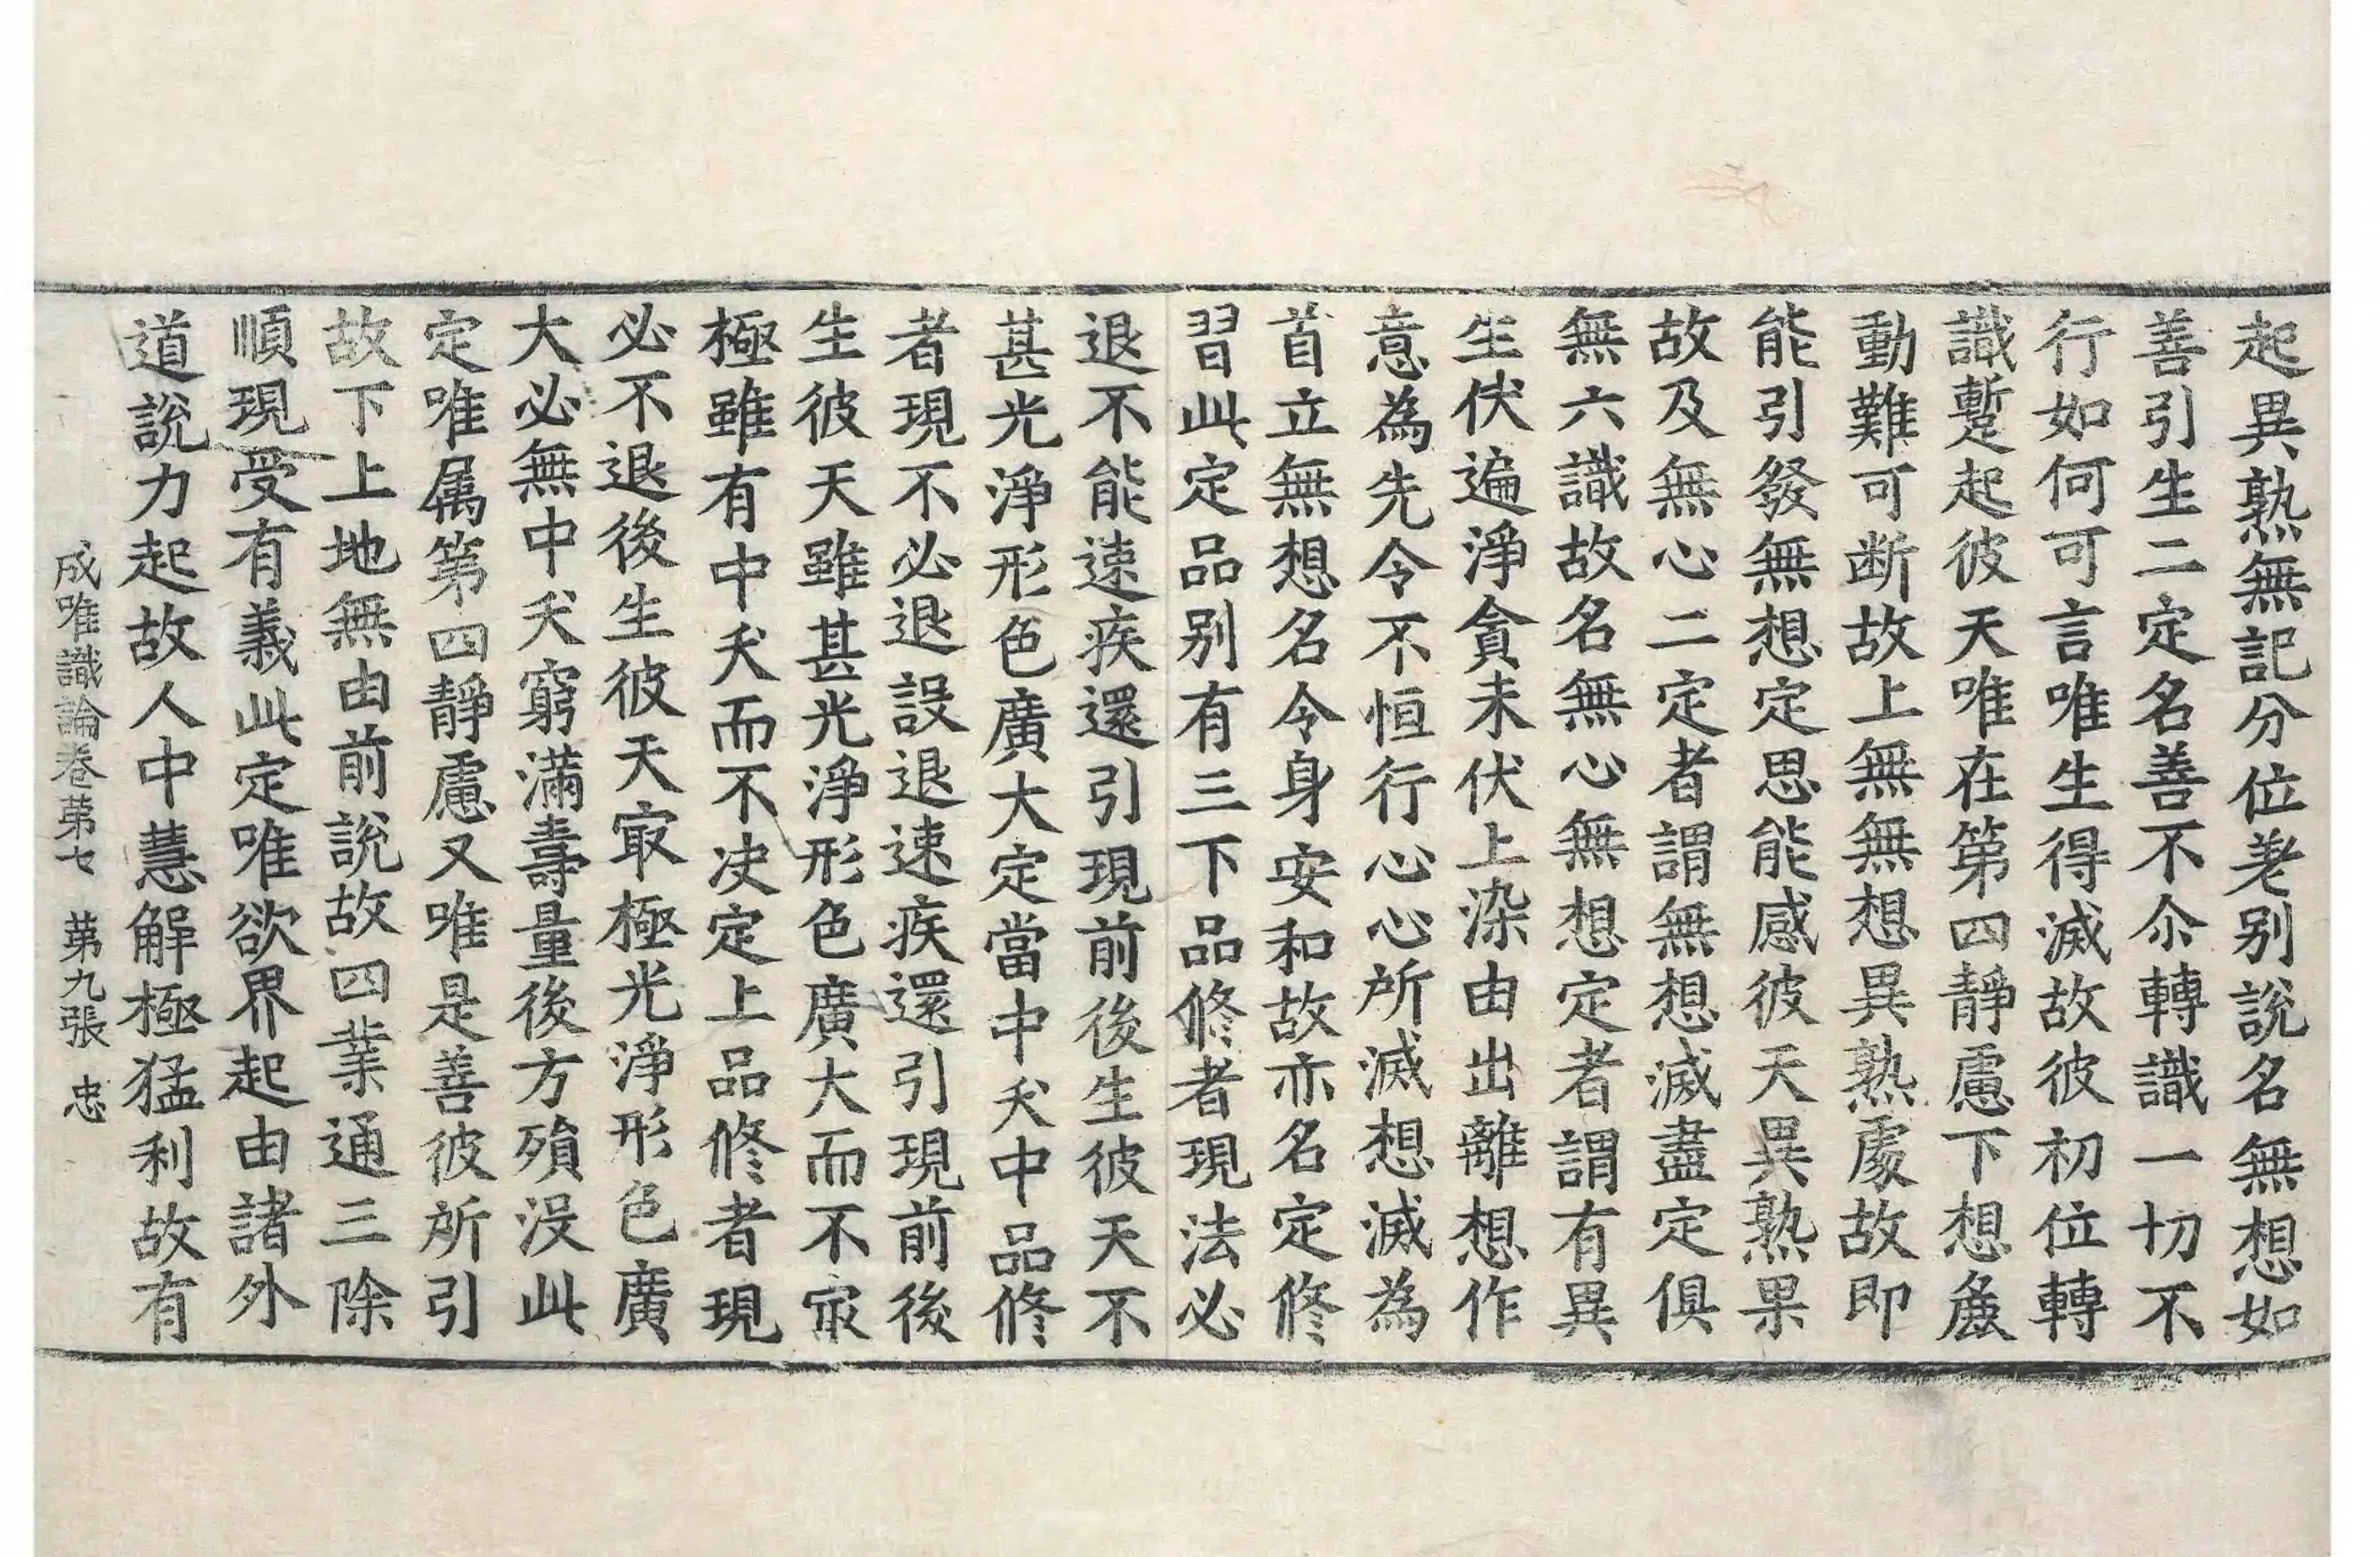 起異熟無記分位差別說名無想如
善引生二定名善不尒轉識一切不
行如何可言唯生得滅故彼初位轉
識蹔起彼天唯在第四靜慮下想麁
動難可断故上無無想異熟處故即
能引發無想定思能感彼天異熟果
故及無心二定者謂無想滅盡定俱
無六識故名無心無想定者謂有異
生伏遍淨貪未伏上染由出離想作
意為先令不恒行心心所滅想滅為
首立無想名令身安和故亦名定修
習此定品別有三下品修者現法必
退不能速疾還引現前後生彼天不
甚光淨形色廣大定當中夭中品修
者現不必退設退速疾還引現前後
生彼天雖甚光淨形色廣大而不㝡
極雖有中夭而不决定上品修者現
必不退後生彼天㝡極光淨形色廣
大必無中夭窮滿壽量後方殞沒此
定唯属第四靜慮又唯是善彼所引
故下上地無由前說故四業通三除
順現受有義此定唯欲界起由諸外
道說力起故人中慧解極猛利故有
成唯識論卷第七 第九張 忠